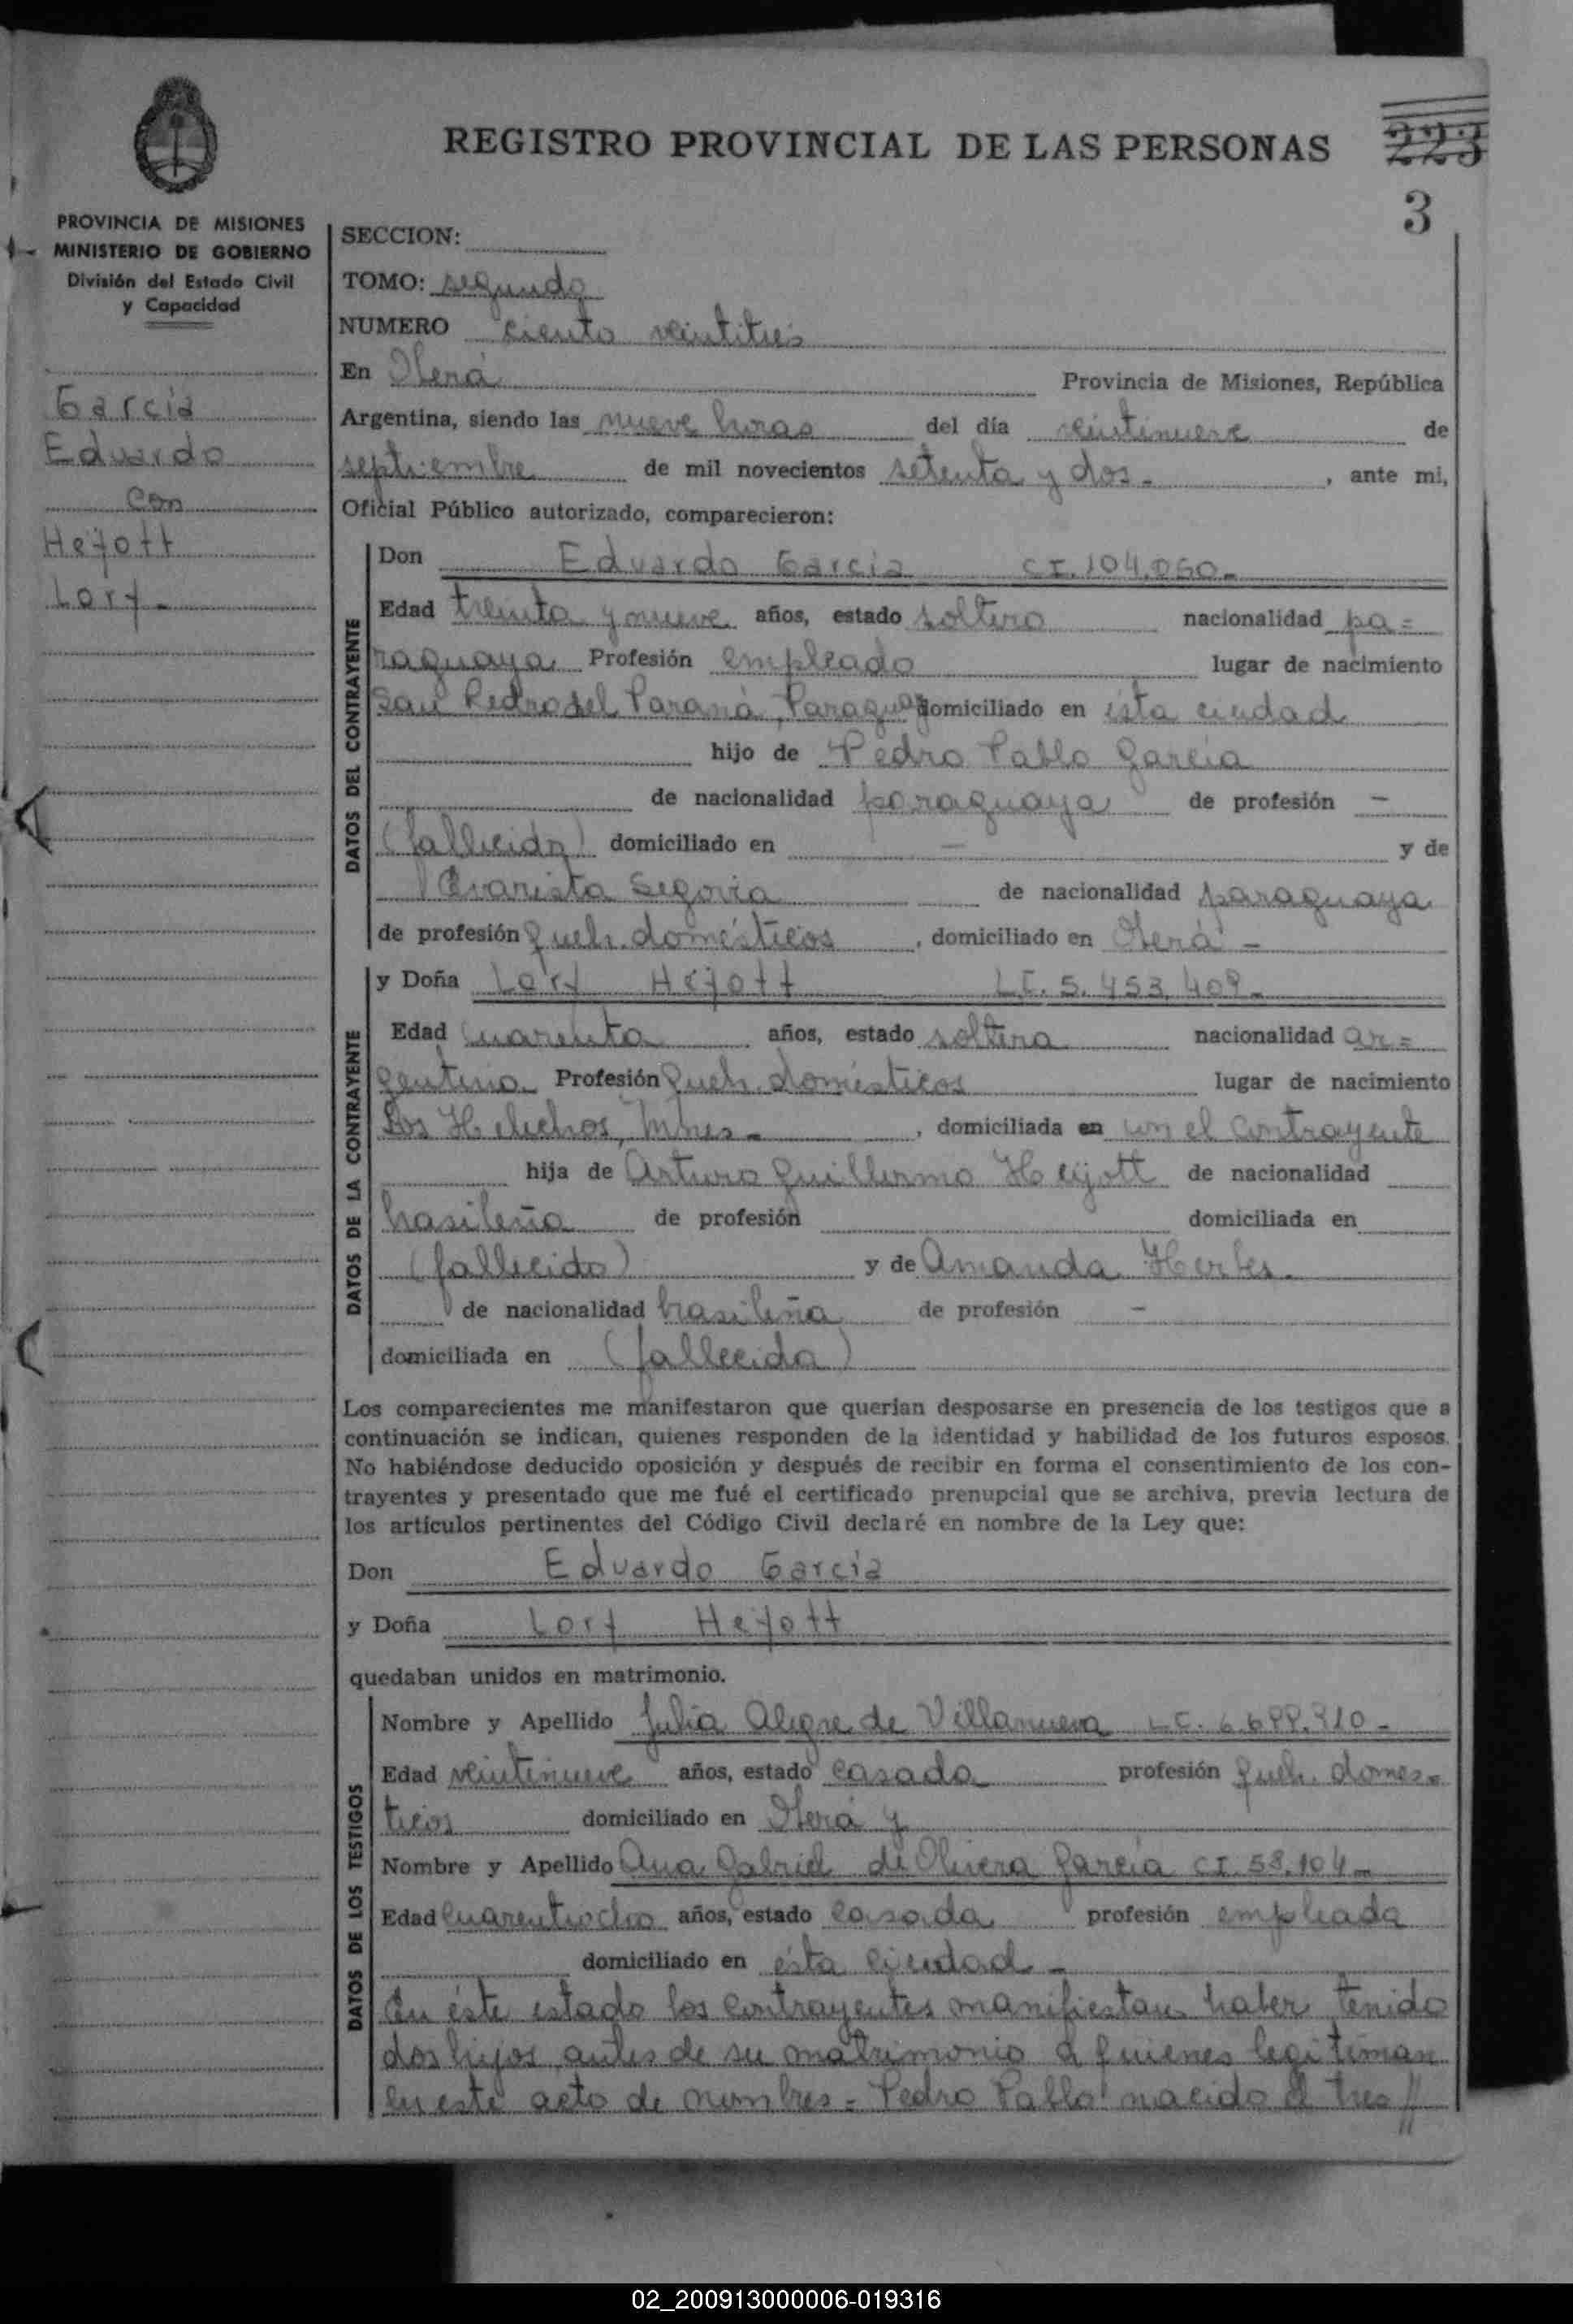 REGISTRO PROVINCIAL DE LAS PERSONAS
223
3
PROVINCIA DE MISIONES
MINISTERIO DE GOBIERNO
División del Estado Civil
y Capacidad
García
Eduardo
con
Hejott
Lory.-
SECCION:
TOMO: segundo
NUMERO ciento veintitrés
En Oberá Provincia de Misiones, República
Argentina, siendo las nueve horas del día veintinueve de
septiembre de mil novecientos setenta y dos.- , ante mi,
Oficial Público autorizado, comparecieron:
DATOS DEL CONTRAYENTE
Don Eduardo García CI. 104.050.-
Edad treinta y nueve años, estado soltero nacionalidad pa=
raguaya Profesión empleado lugar de nacimiento
San Pedro del Paraná, Paraguay domiciliado en ésta ciudad
hijo de Pedro Pablo García
de nacionalidad paraguaya de profesión -
(fallecido) domiciliado en - y de
Evarista Segovia de nacionalidad paraguaya
de profesión queh. domésticos , domiciliado en Oberá -
DATOS DE LA CONTRAYENTE
y Doña Lory Hejott LC. 5.453.409.-
Edad cuarenta años, estado soltera nacionalidad ar=
gentina Profesión queh. domésticos lugar de nacimiento
Los Helechos, Mnes.- , domiciliada en con el contrayente
hija de Arturo Guillermo Hejott de nacionalidad
brasileña de profesión domiciliada en
(fallecido) y de Amanda
de nacionalidad brasileña de profesión -
domiciliada en (fallecida)
Los comparecientes me manifestaron que querían desposarse en presencia de los testigos que a
continuación se indican, quienes responden de la identidad y habilidad de los futuros esposos.
No habiéndose deducido oposición y después de recibir en forma el consentimiento de los con-
trayentes y presentado que me fué el certificado prenupcial que se archiva, previa lectura de
los artículos pertinentes del Código Civil declaré en nombre de la Ley que:
Don Eduardo García
y Doña Lory Hejott
quedaban unidos en matrimonio.
DATOS DE LOS TESTIGOS
Nombre y Apellido Julia Alegre de Villanueva LC.
Edad veintinueve años, estado casada profesión queh. domes=
ticos domiciliado en Oberá y
Nombre y Apellido Ana Gabriel de Olivera García CI. 58.104.-
Edad cuarentiocho años, estado casada profesión empleada
domiciliado en ésta ciudad.-
En éste estado los contrayentes manifiestan haber tenido
dos hijos antes de su matrimonio a quienes legitiman
en este acto de nombres = Pedro Pablo nacido el tres //
02_200913000006-019316